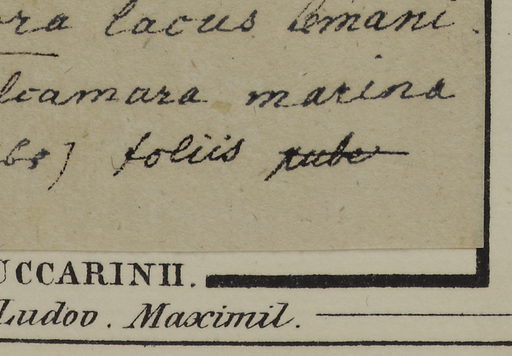 ra lacus lemani.
lcamara marina
bs) foliis pube
UCCARINII.
Ludov. Maximil.